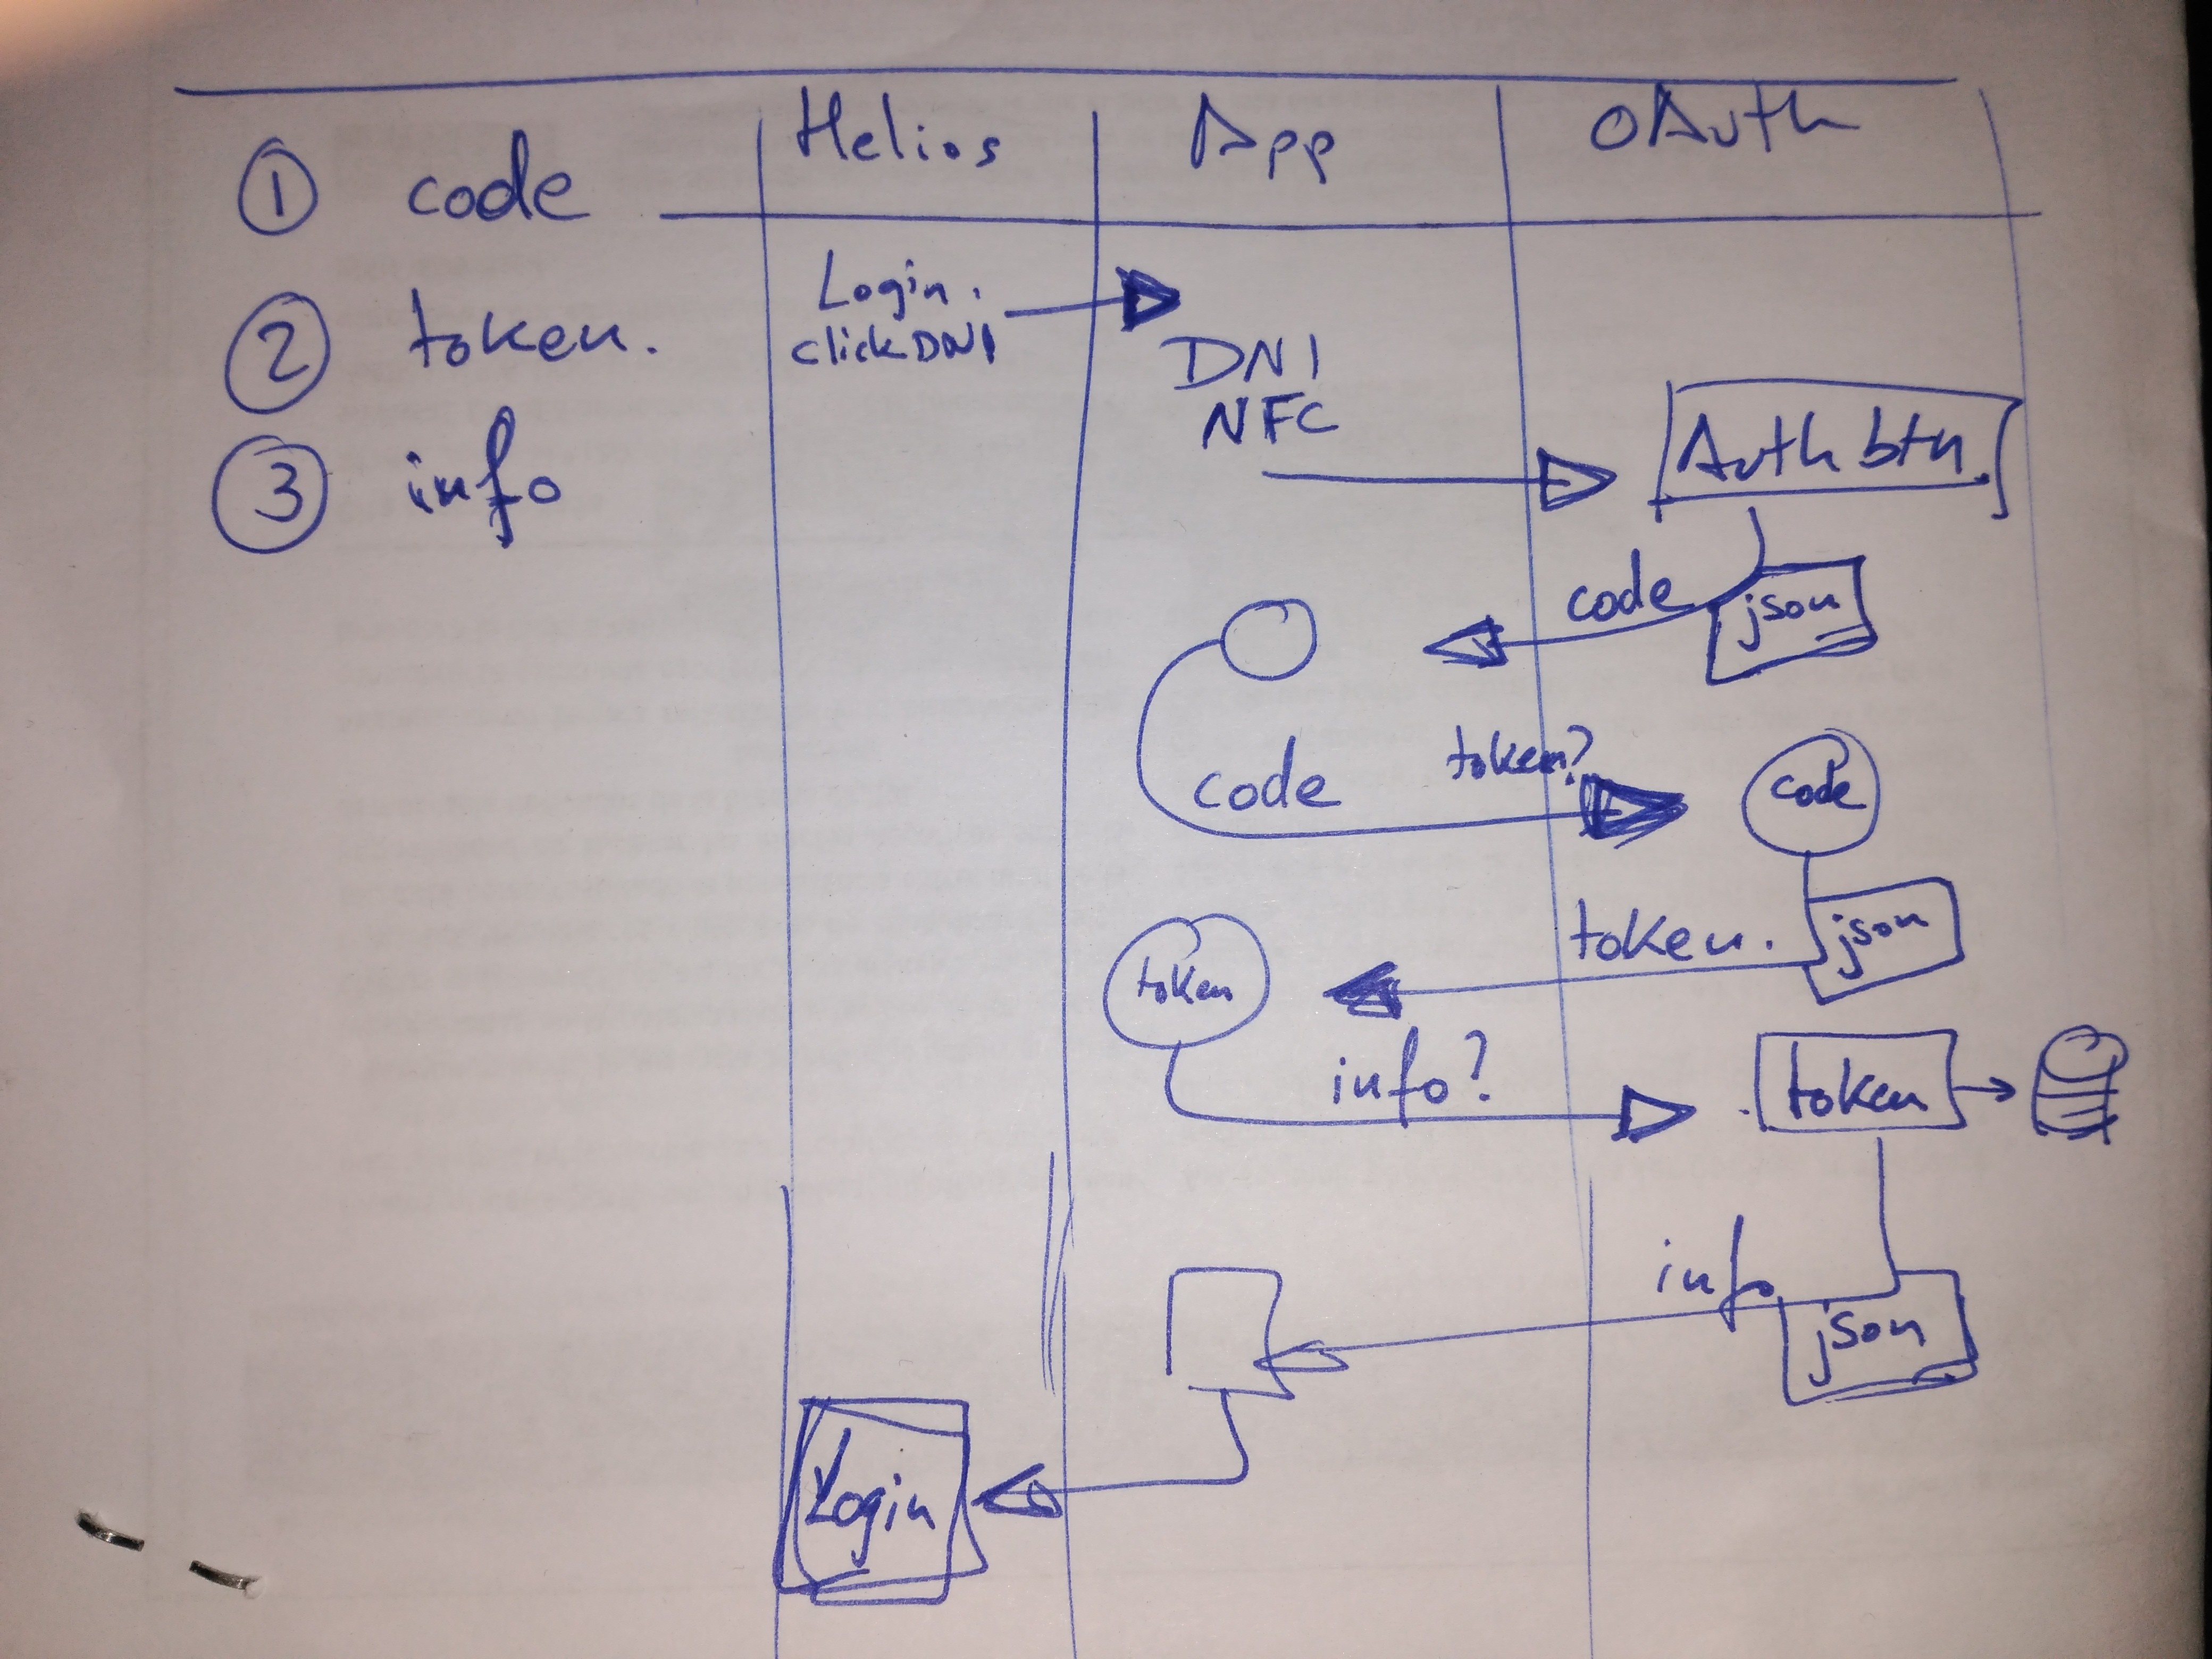 ① code
② token.
③ info
Helios
App
OAuth
Login.
click DNI
DNI
NFC
Auth btn.
code
json
code
token?
code
token.
json
token
info?
token
info
json
Login